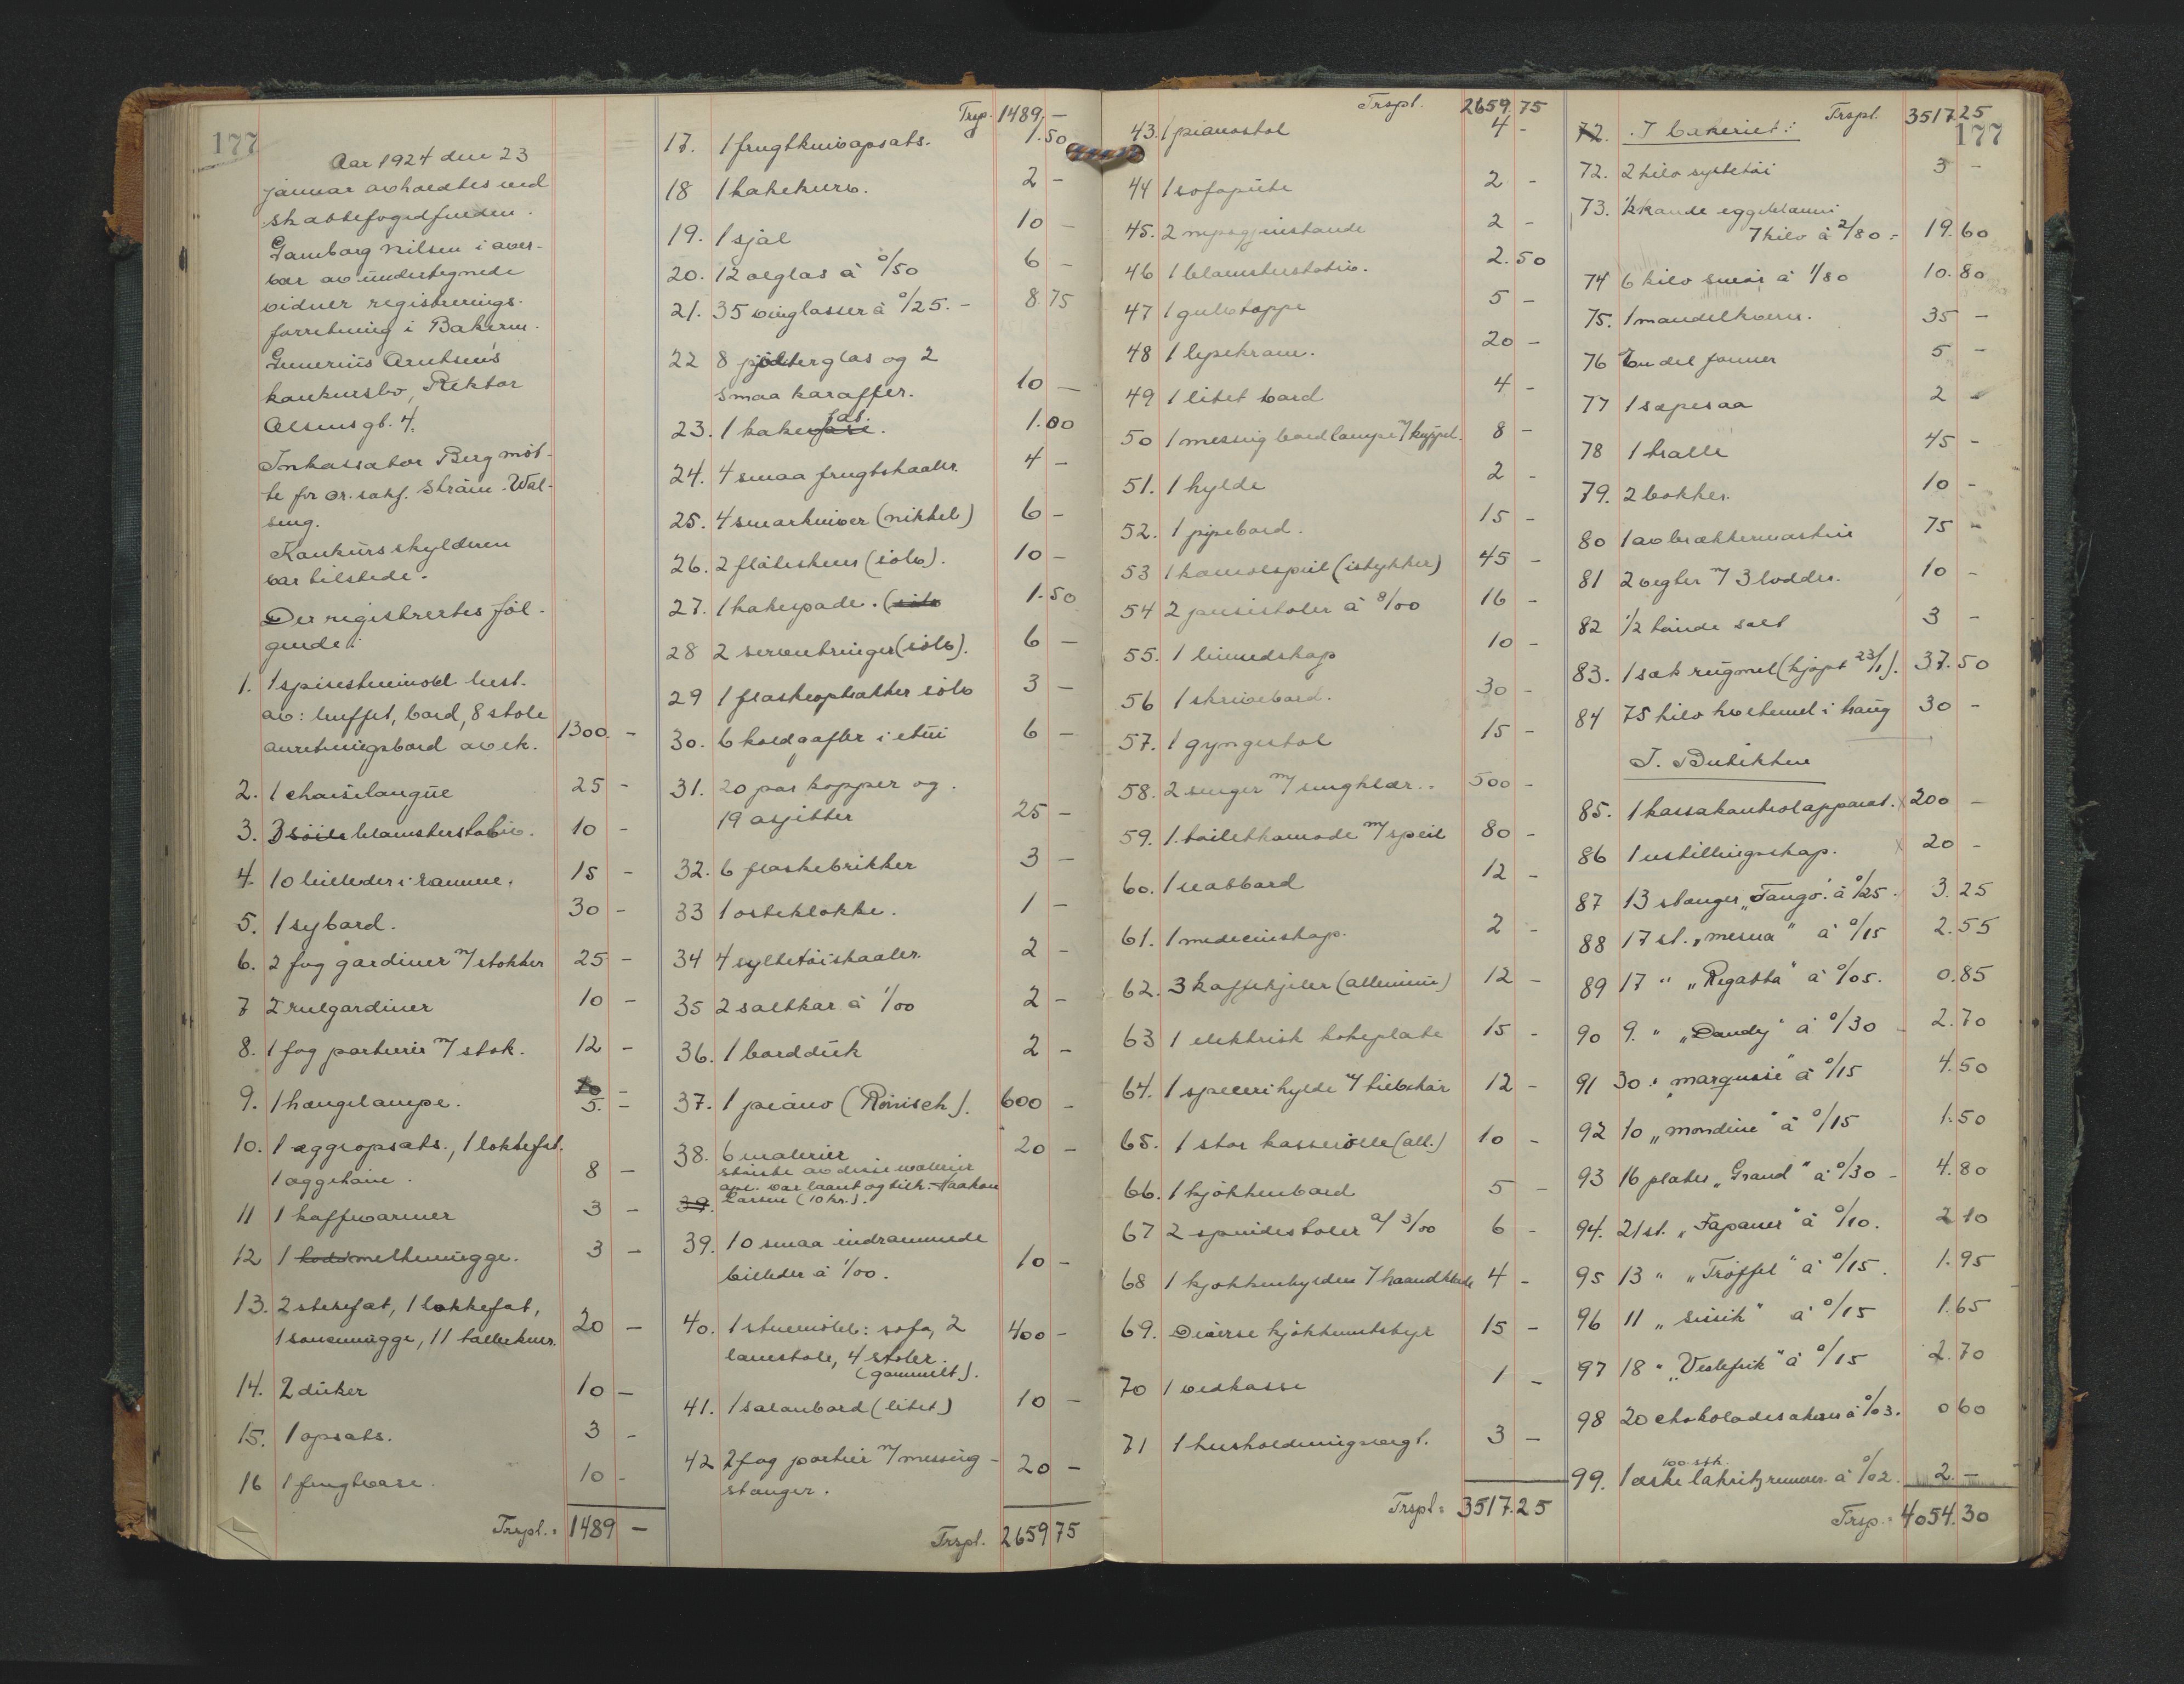 177
Aar 1924 den 23
januar avholdtes ved
skattefogdfuldm.
Gamborg Nilsen i over-
vær av undertegnede
vidner registrerings-
forretning i Bakerm.
Arntsen's
konkursbo, Rektor
Olsensgt. 4.
Inkassator Berg møt-
te for or. sakf. Strøm. Wal-
seng.
Konkursskyldneren
var tilstede.
Der registrertes føl-
gende:
1. 1 spisestuemøbl. best.
av: buffet, bord, 8 stole
anretningsbord av ek. 1300. -
2. 1 chaiselongue 25 -
3. 3 søile blomsterstativ. 10 -
4. 10 billeder i ramme. 15 -
5. 1 sybord. 30 -
6. 2 fag gardiner m/ stokker 25 -
7 2 rulgardiner 10 -
8. 1 fag portierer m/ stok. 12 -
9. 1 hængelampe. 5. -
10. 1 eggeopsats., 1 lokkefat.
1 eggehøne. 8 -
11 1 kaffevarmer 3 -
12 1 melkemugge. 3 -
13. 2 stekefat, 1 lokkefat,
1 sausemugge, 11 tallerkner. 20 -
14. 2 duker 10 -
15. 1 opsats. 3 -
16 1 frugtvase. 10 -
Trspl.: 1489 -
Trsp. 1489. -
17. 1 frugtknivopsats. 1.50
18 1 kakekurv. 2 -
19. 1 sjal 10 -
20. 12 ølglas à 0/50 6 -
21. 35 vinglasser à 0/25. - 8.75
22 8 pjolterglas og 2
smaa karaffer. 10 -
23. 1 kakefat. 1.00
24. 4 smaa frugtskaaler. 4 -
25. 4 smørkniver (nikkel) 6 -
26. 2 fløteskeer (sølv). 10 -
27. 1 kakespade. (sølv 1.50
28 2 servietringer (sølv). 6 -
29 1 flaskeoptrækker sølv 3 -
30. 6 koldgafler i etui 6 -
31. 20 par kopper og
19 asjetter 25 -
32. 6 flaskebrikker 3 -
33 1 osteklokke. 1 -
34 4 syltetøiskaaler. 2 -
35 2 saltkar à 1/00 2 -
36. 1 bordduk 2 -
37. 1 piano (Rönisch). 600 -
38. 6 malerier 20 -
største av disse malerier
var laant og tilh. Haakon
39. Larsen (10 kr.).
39. 10 smaa indrammede
billeder à 1/00. 10 -
40. 1 stuemøbl: sofa, 2
lænstole, 4 stoler 400 -
(gammelt).
41. 1 salonbord (litet) 10 -
42 2 fag portier m/ messing-
stanger. 20 -
Trspl. 2659 75
Trspl. 2659.75
43. 1 pianostol 4 -
44 1 sofapute 2 -
45. 2 2 -
46 1 blomsterstativ. 2.50
47 1 gulvteppe 5 -
48 1 20 -
49 1 litet bord 4 -
50 1 messing bordlampe m/ kuppel. 8 -
51. 1 hylde 2 -
52. 1 pipebord. 15 -
53 1 konsolspeil (istykker) 45 -
54 2 pinnestoler à 8/00 16 -
55. 1 linnedskap 10 -
56 1 skrivebord. 30 -
57. 1 gyngestol 15 -
58. 2 senger m/ sengklær.. 500 -
59. 1. toiletkomode m/ speil 80 -
60. 1 natbord 12 -
61. 1 medecinskap. 2 -
62. 3 kaffekjeler (alluminiu) 12 -
63 1 elektrisk kokeplate 15 -
64. 1 specerihylde m/ tilbehør 12 -
65. 1 stor kasserolle (all.) 10 -
66. 1 kjøkkenbord 5 -
67 2 spindestoler a/ 3/00 6 -
68 1 kjøkkenhylden / haandklæde 4 -
69. Diverse kjøkkenutstyr 15 -
70 1 vedkasse 1 -
71 1 husholdningsvegt. 3 -
Trspl: 3517.25
Trspl. 3517.25
177
72. I bakeriet:
72. 2 kilo syltetøi 3 -
73. 1/2 kande eggeblomme
7 kilo à 2/80 = 19.60
74 6 kilo smør à 1/80 10.80
75. 1 mandelkvern. 35 -
76 En del former 5 -
77 1 sæpesaa 2 -
78 1 tralle 45 -
79. 2 bokker. 10 -
80 1 avbrækkermaskin 75 -
81 2 vegter m/ 3 lodder. 10 -
82 1/2 tønde salt 3 -
83. 1 sæk rugmel (kjøpt 23/1). 37.50
84 75 kilo hvetemel i haug 30 -
I. Butikken
85. 1 kassakontrolapparat. x 200 -
86 1 utstillingsskap. x 20 -
87 13 stanger „Tango" à 0/25. 3.25
88 17 st. „mesna" à 0/15 2.55
89 17 " „Regatta" à 0/05. 0.85
90 9. " „Dandy" à 0/30 - 2.70
91 30 " „marquise" à 0/15 4.50
92 10 „mondine" à 0/15 1.50
93 16 plater „Grand" à 0/30 - 4.80
94. 21 st. „Japaner" à 0/10. 2 10
95 13 " „Trøffel" à 0/15. 1.95
96 11 „sissik" à 0/15 1.65
97 18 " „Veslefrik" à 0/15 2.70
98 20 chokoladesakser à 0/03. 0 60
100 stk.
99. 1 æske lakritzremmer à 0/02. 2. -
Trsp.: 4054.30